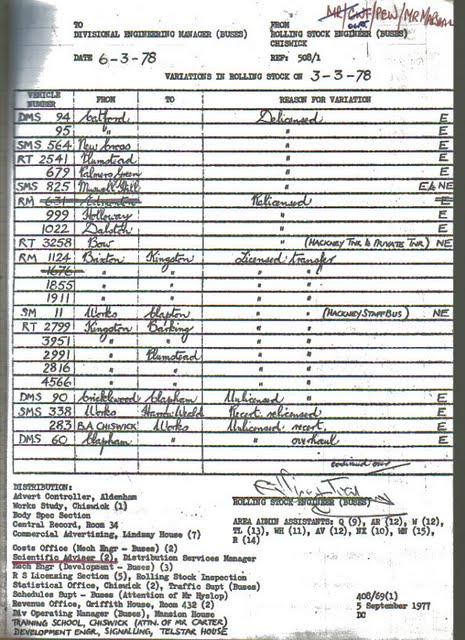 DIR/GWF/PEW/MR MARSHALL
TO FROM
DIVISIONAL ENGINEERING MANAGER (BUSES) ROLLING STOCK ENGINEER (BUSES)
CHISWICK
DATE 6-3-78 REF: 508/1
VARIATIONS IN ROLLING STOCK ON 3-3-78
VEHICLE NUMBER FROM TO REASON FOR VARIATION
DMS 94 Catford Delicensed E
95 " " E
SMS 564 New Cross " E
RT 2541 Plumstead " E
679 Palmers Green " E
SMS 825 Muswell Hill " E & NE
RM 631 Edmonton Relicensed E
999 Holloway " E
1022 Dalston " E
RT 3258 Bow " (HACKNEY TNR to PRIVATE TNR) NE
RM 1124 Brixton Kingston Licensed transfer
1676 " " "
1855 " " " "
1911 " " " "
SM 11 Works Clapton " " (HACKNEY STAFF BUS) NE
RT 2799 Kingston Barking " "
3951 " " " "
2991 " Plumstead " "
2816 " " " "
4566 " " " "
DMS 90 Cricklewood Clapham Unlicensed " E
SMS 338 Works Harrow Weald Recert. relicensed E
283 B.A CHISWICK Works Unlicensed recert. E
DMS 60 Clapham " " overhaul E
continued over
DISTRIBUTION:
Advert Controller, Aldenham
Works Study, Chiswick (1)
Body Spec Section
Central Record, Room 34
Commercial Advertising, Lindsay House (7)
Costs Office (Mech Engr - Buses) (2)
Scientific Adviser (2), Distribution Services Manager
Mech Engr (Development - Buses) (3)
R S Licensing Section (5), Rolling Stock Inspection
Statistical Office, Chiswick (2), Traffic Supt (Buses)
Schedules Supt - Buses (Attention of Mr Hyslop)
Revenue Office, Griffith House, Room 432 (2)
Div Operating Manager (Buses), Mansion House
TRAINING SCHOOL, CHISWICK (ATTN. OF MR. CARTER)
DEVELOPMENT ENGR, SIGNALLING, TELSTAR HOUSE
ROLLING STOCK ENGINEER (BUSES)
AREA ADMIN ASSISTANTS: Q (9), AR (12), W (12),
TL (13), WH (11), AV (12), NX (10), WN (15),
R (14)
408/69(1)
5 September 1977
DC